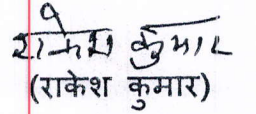 राकेश कुमार
(राकेश कुमार)